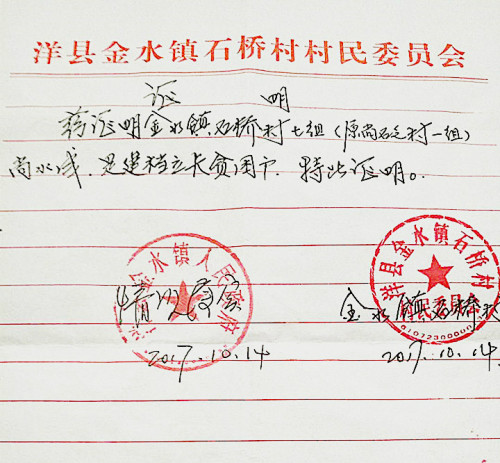 洋县金水镇石桥村村民委员会
证 明
兹证明金水镇石桥村七组(原尚石之村一组)
尚水成,是建档立卡贫困户,特此证明。
情况属实
2017.10.14
洋县金水镇人民政府
金水镇石桥村
2017.10.14
洋县金水镇石桥村
村民委员会